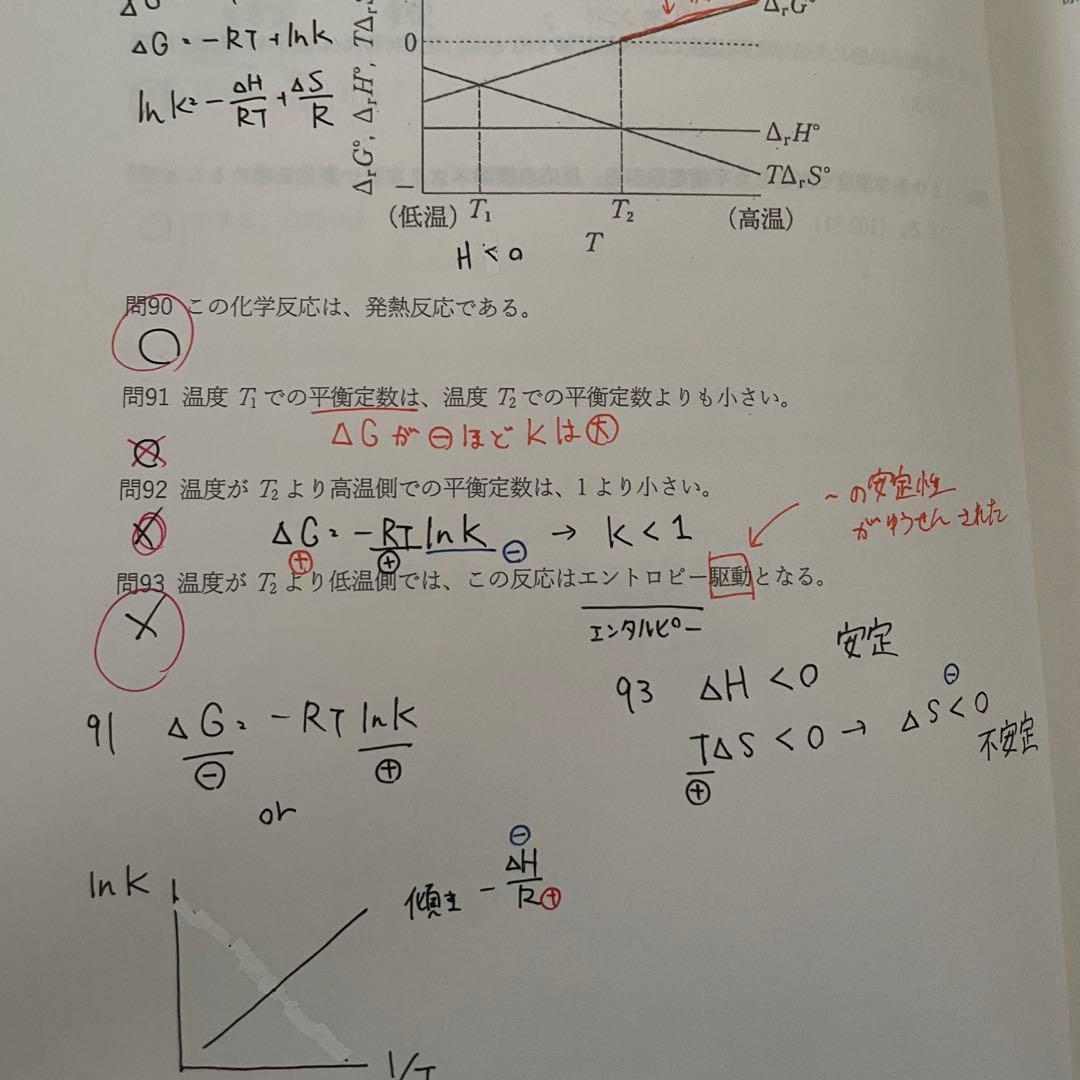 ΔG = -RT + lnK
lnK = - ΔH/RT + ΔS/R
ΔrG°, ΔrH°, TΔrS°
0
ΔrG°
ΔrH°
TΔrS°
−
(低温) T₁ T₂ (高温)
T
H < 0
問90 この化学反応は、発熱反応である。
○
問91 温度 T₁ での平衡定数は、温度 T₂ での平衡定数よりも小さい。
ΔGが⊖ほどKは大
問92 温度が T₂ より高温側での平衡定数は、1 より小さい。
ΔG = -RT lnK → K < 1
⊕ ⊕ ⊖
〜の安定性
がゆうせんされた
問93 温度が T₂ より低温側では、この反応はエントロピー駆動となる。
×
エンタルピー
91 ΔG = -RT lnK
⊖ ⊕
or
93 ΔH < 0 安定
TΔS < 0 → ΔS < 0 不安定
⊕ ⊖
lnK
傾き - ΔH/R
⊖ ⊕
1/T